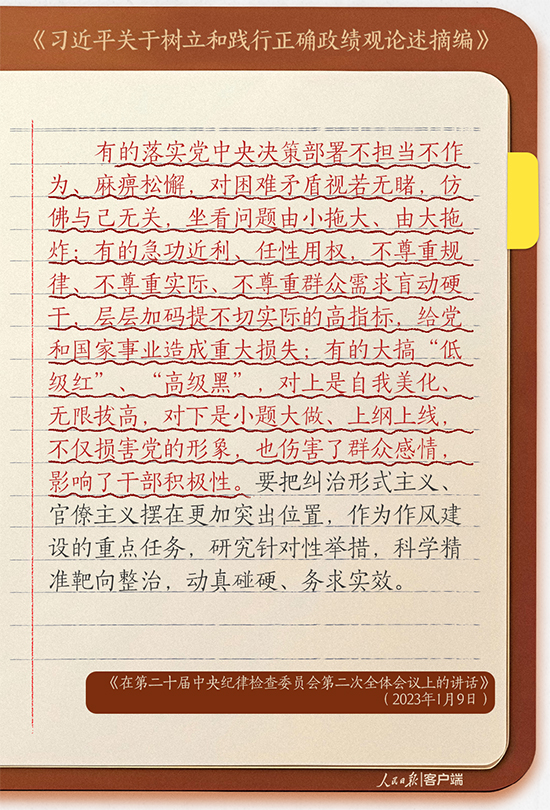 《习近平关于树立和践行正确政绩观论述摘编》
有的落实党中央决策部署不担当不作
为、麻痹松懈，对困难矛盾视若无睹，仿
佛与己无关，坐看问题由小拖大、由大拖
炸；有的急功近利、任性用权，不尊重规
律、不尊重实际、不尊重群众需求盲动硬
干，层层加码提不切实际的高指标，给党
和国家事业造成重大损失；有的大搞“低
级红”、“高级黑”，对上是自我美化、
无限拔高，对下是小题大做、上纲上线，
不仅损害党的形象，也伤害了群众感情，
影响了干部积极性。要把纠治形式主义、
官僚主义摆在更加突出位置，作为作风建
设的重点任务，研究针对性举措，科学精
准靶向整治，动真碰硬、务求实效。
《在第二十届中央纪律检查委员会第二次全体会议上的讲话》
（2023年1月9日）
人民日报 客户端